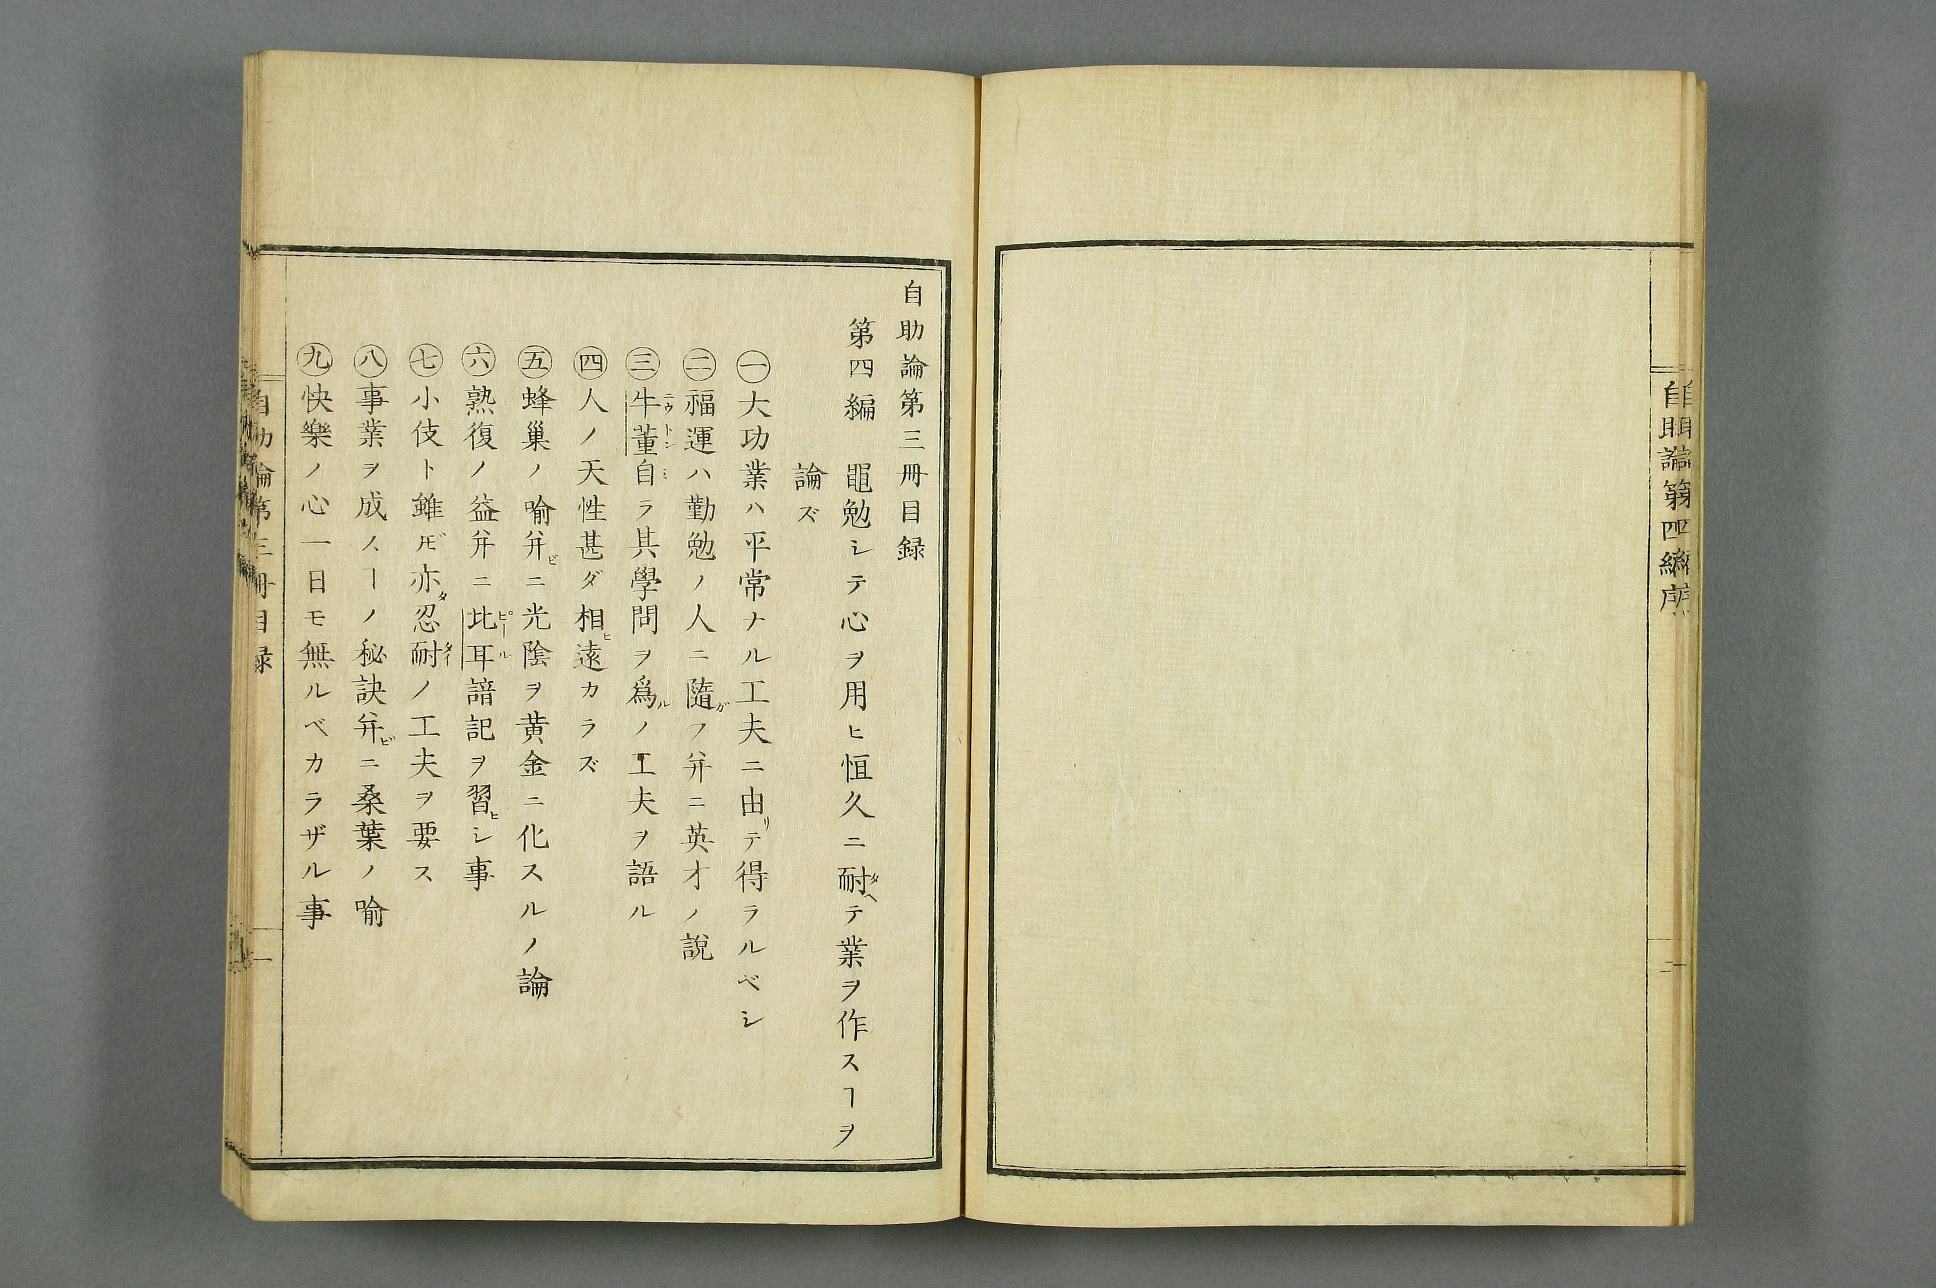 自助論第四編序
二
自助論第三冊目録
第四編　黽勉シテ心ヲ用ヒ恒久ニ耐タヘテ業ヲ作スヿヲ
論ズ
㊀大功業ハ平常ナル工夫ニ由リテ得ラルベシ
㊁福運ハ勤勉ノ人ニ隨ガフ并ニ英才ノ說
㊂牛董ニウトン自ミラ其學問ヲ爲ルノ工夫ヲ語ル
㊃人ノ天性甚ダ相遠ヒカラズ
㊄蜂巢ノ喻并ビニ光陰ヲ黄金ニ化スルノ論
㊅熟復ノ益并ニ比耳ピール諳記ヲ習ヒシ事
㊆小伎ト雖𪜈亦タ忍耐タイノ工夫ヲ要ス
㊇事業ヲ成スヿノ秘訣并ビニ桑葉ノ喻
㊈快樂ノ心一日モ無ルベカラザル事
自助論第三冊目録
一